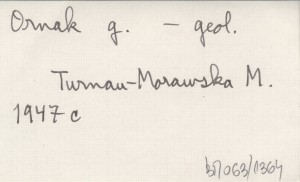 Ornak g. – geol.
Turnau-Morawska M.
1947 c
b7063/1364